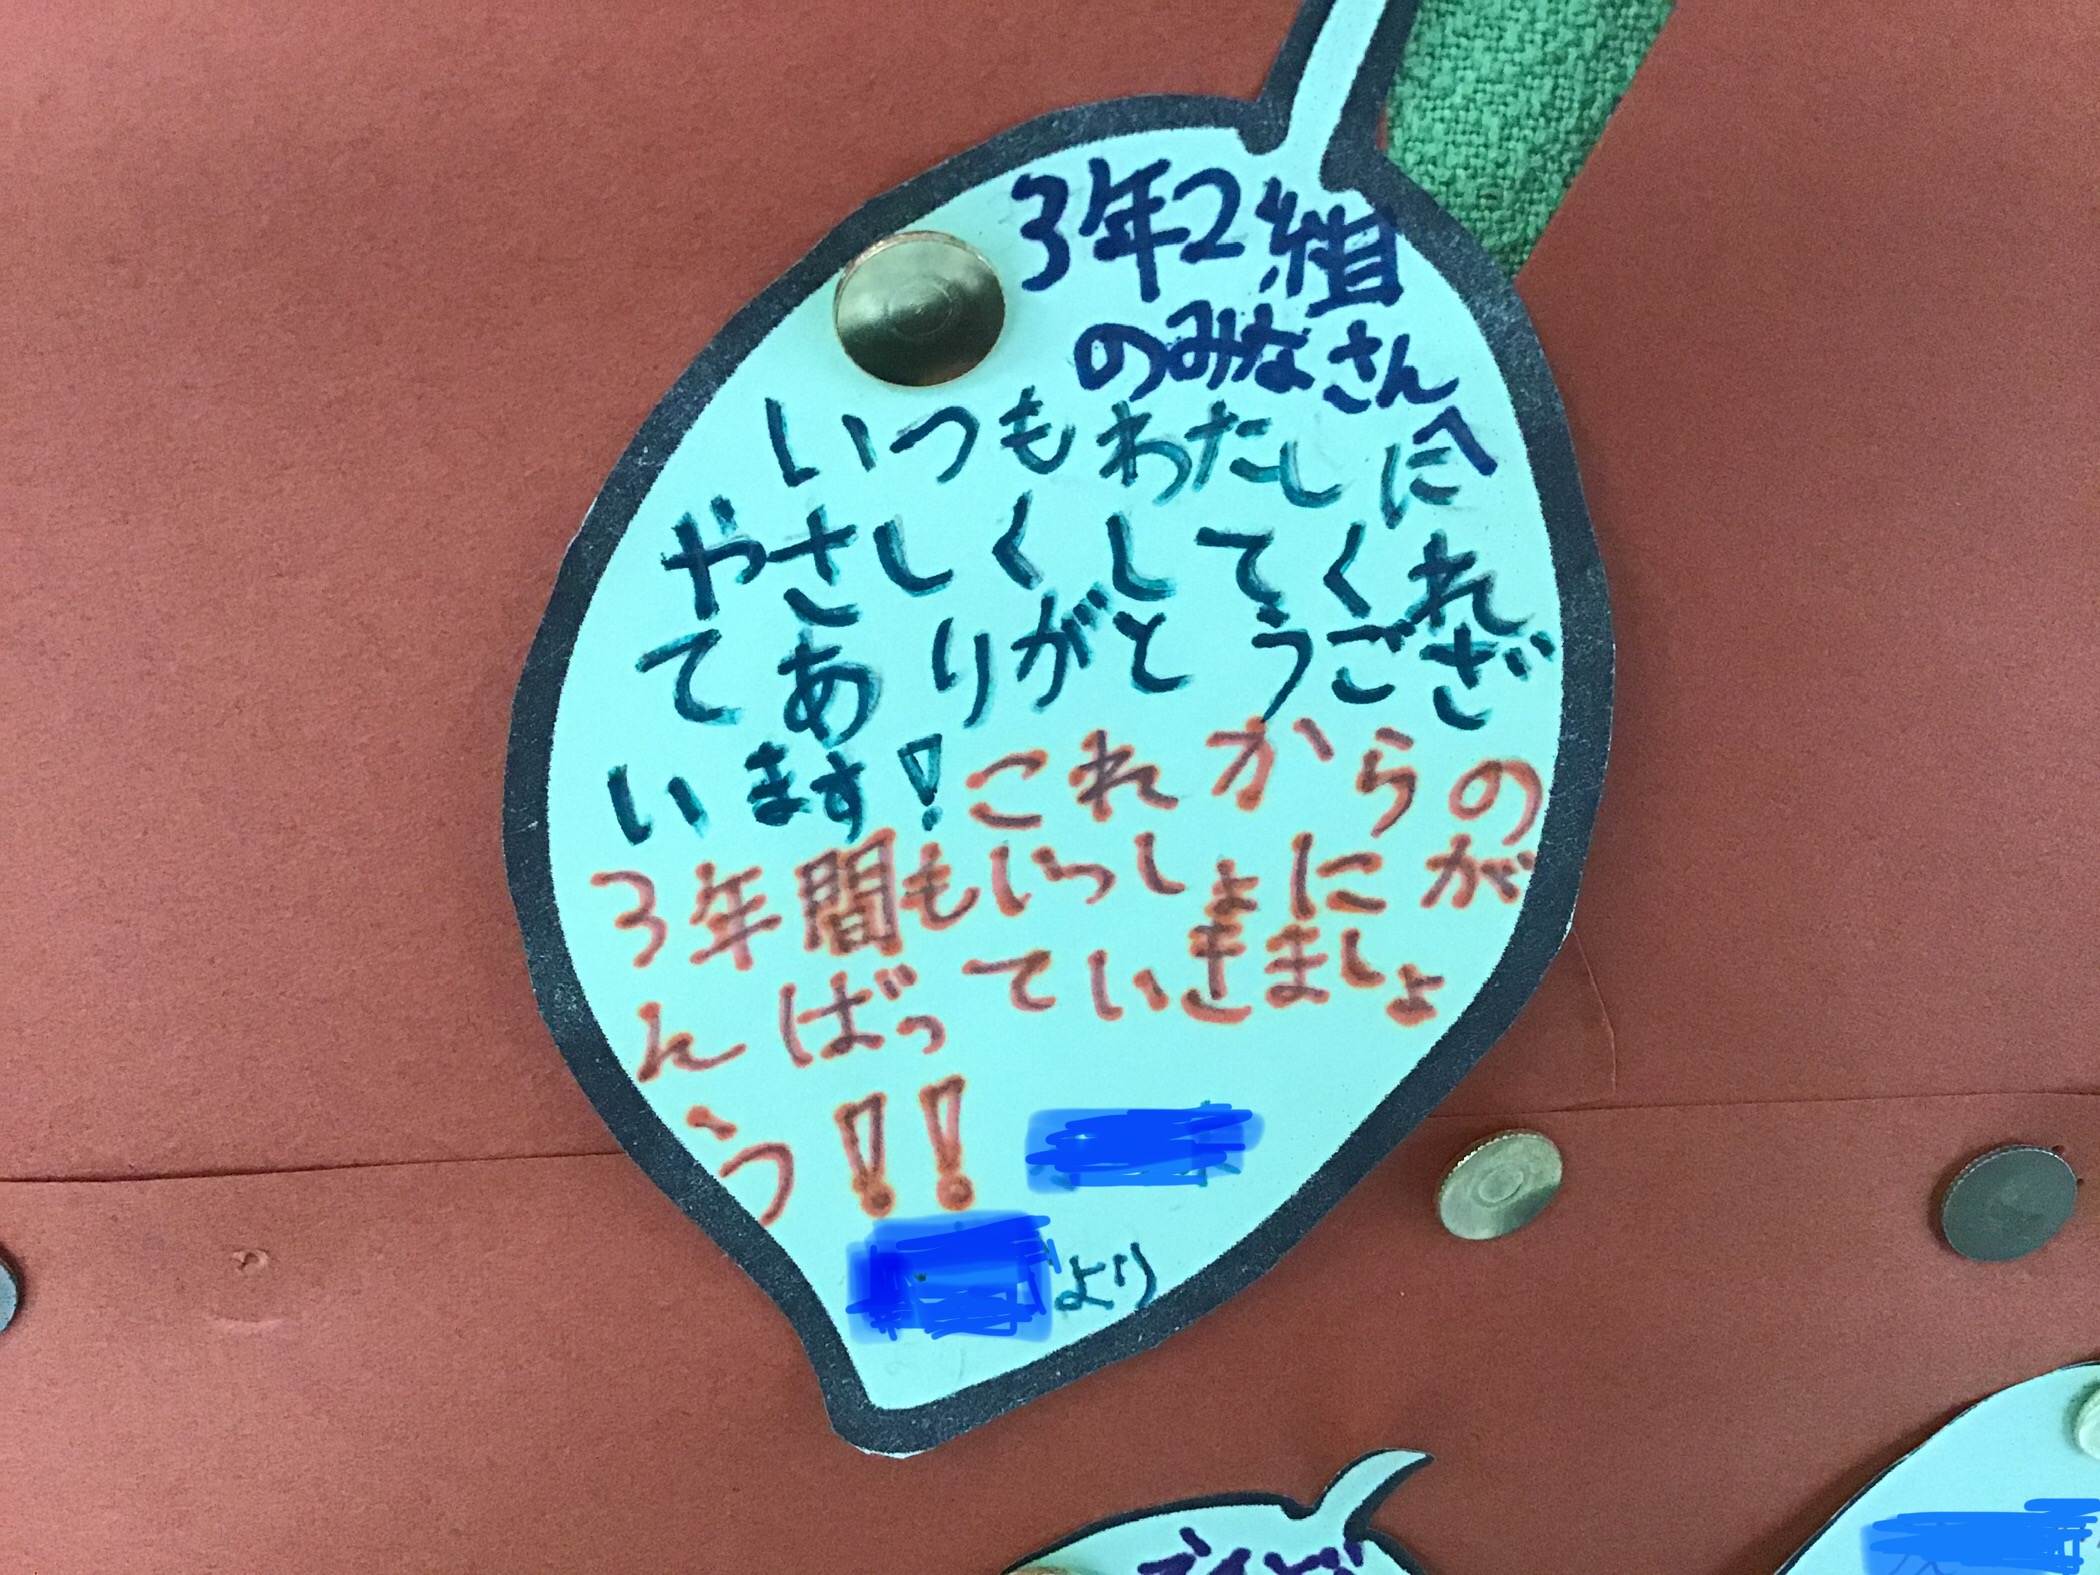 3年2組
のみなさんへ
いつもわたしに
やさしくしてくれ
てありがとうござ
います!これからの
3年間もいっしょにが
んばっていきましょ
う!!
より